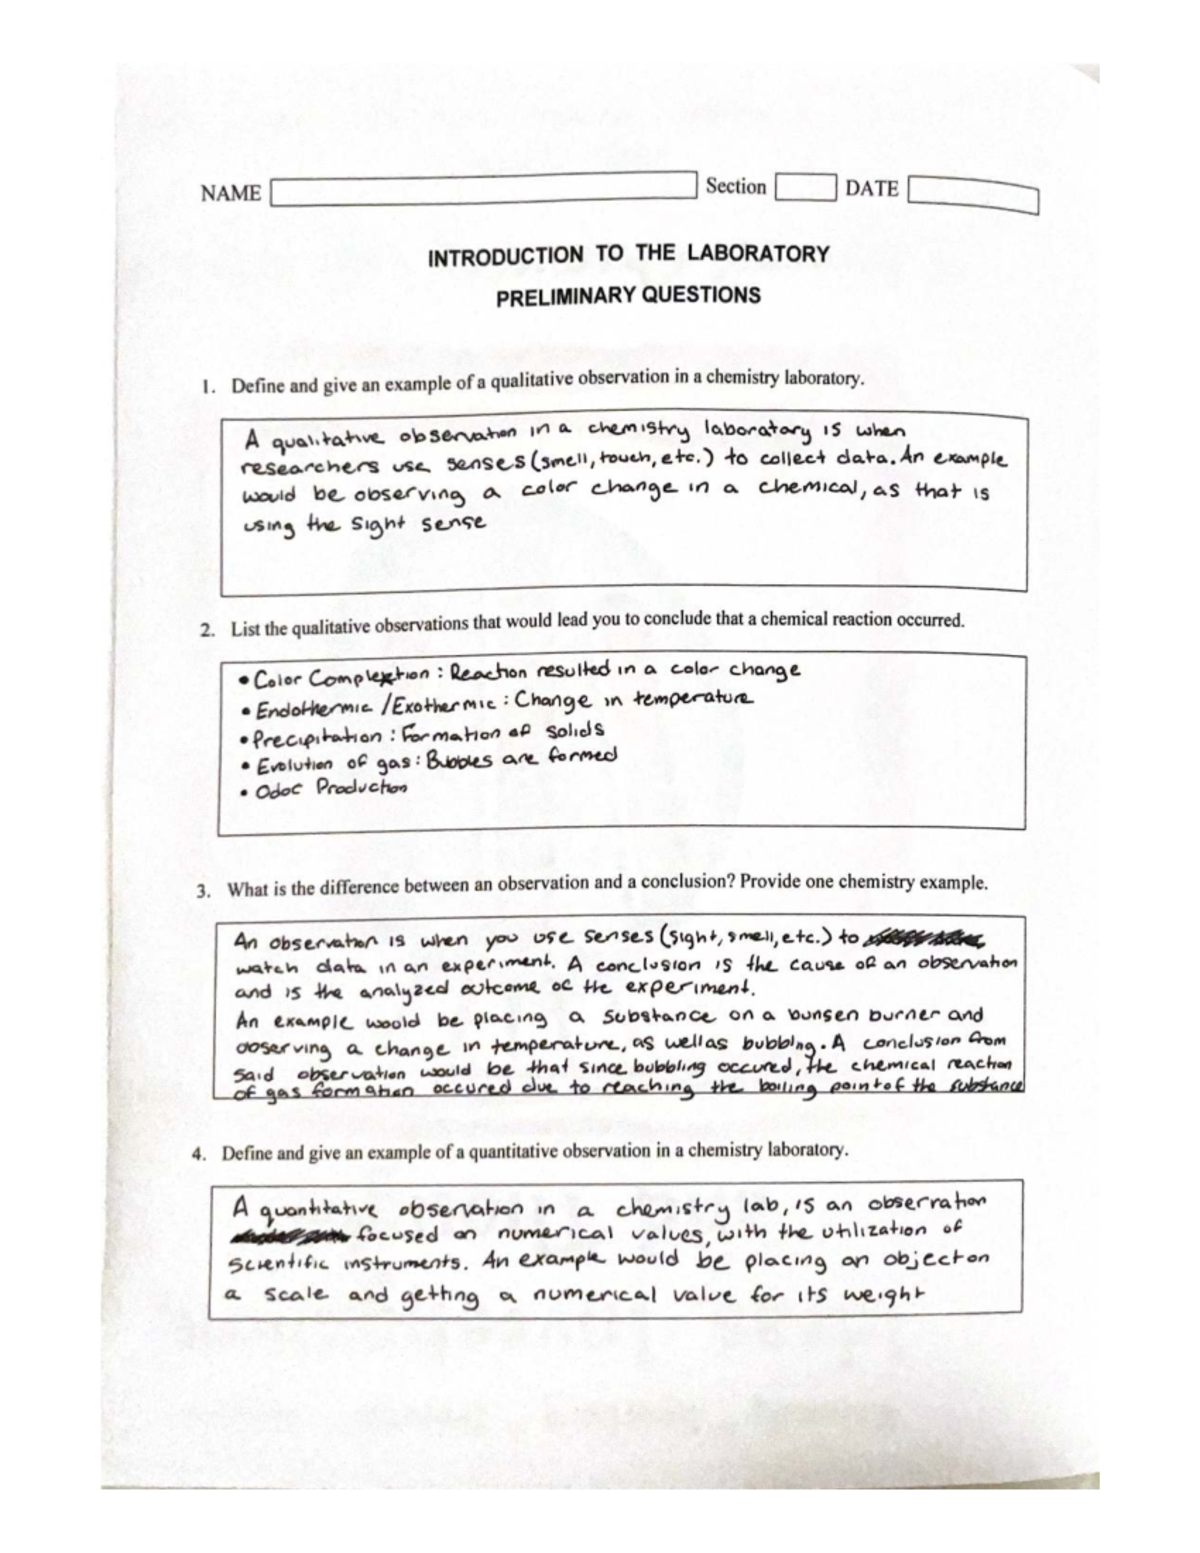 NAME Section DATE
INTRODUCTION TO THE LABORATORY
PRELIMINARY QUESTIONS
1. Define and give an example of a qualitative observation in a chemistry laboratory.
A qualitative observation in a chemistry laboratory is when
researchers use senses (smell, touch, etc.) to collect data. An example
would be observing a color change in a chemical, as that is
using the sight sense
2. List the qualitative observations that would lead you to conclude that a chemical reaction occurred.
• Color : Reaction resulted in a color change
• Endothermic / Exothermic : Change in temperature
• Precipitation : Formation of solids
• Evolution of gas : Bubbles are formed
• Odor Production
3. What is the difference between an observation and a conclusion? Provide one chemistry example.
An observation is when you use senses (sight, smell, etc.) to
watch data in an experiment. A conclusion is the cause of an observation
and is the analyzed outcome of the experiment.
An example would be placing a substance on a bunsen burner and
observing a change in temperature, as well as bubbling. A conclusion from
said observation would be that since bubbling occured, the chemical reaction
of gas formation occured due to reaching the boiling point of the substance
4. Define and give an example of a quantitative observation in a chemistry laboratory.
A quantitative observation in a chemistry lab, is an observation
focused on numerical values, with the utilization of
scientific instruments. An example would be placing an object on
a scale and getting a numerical value for its weight